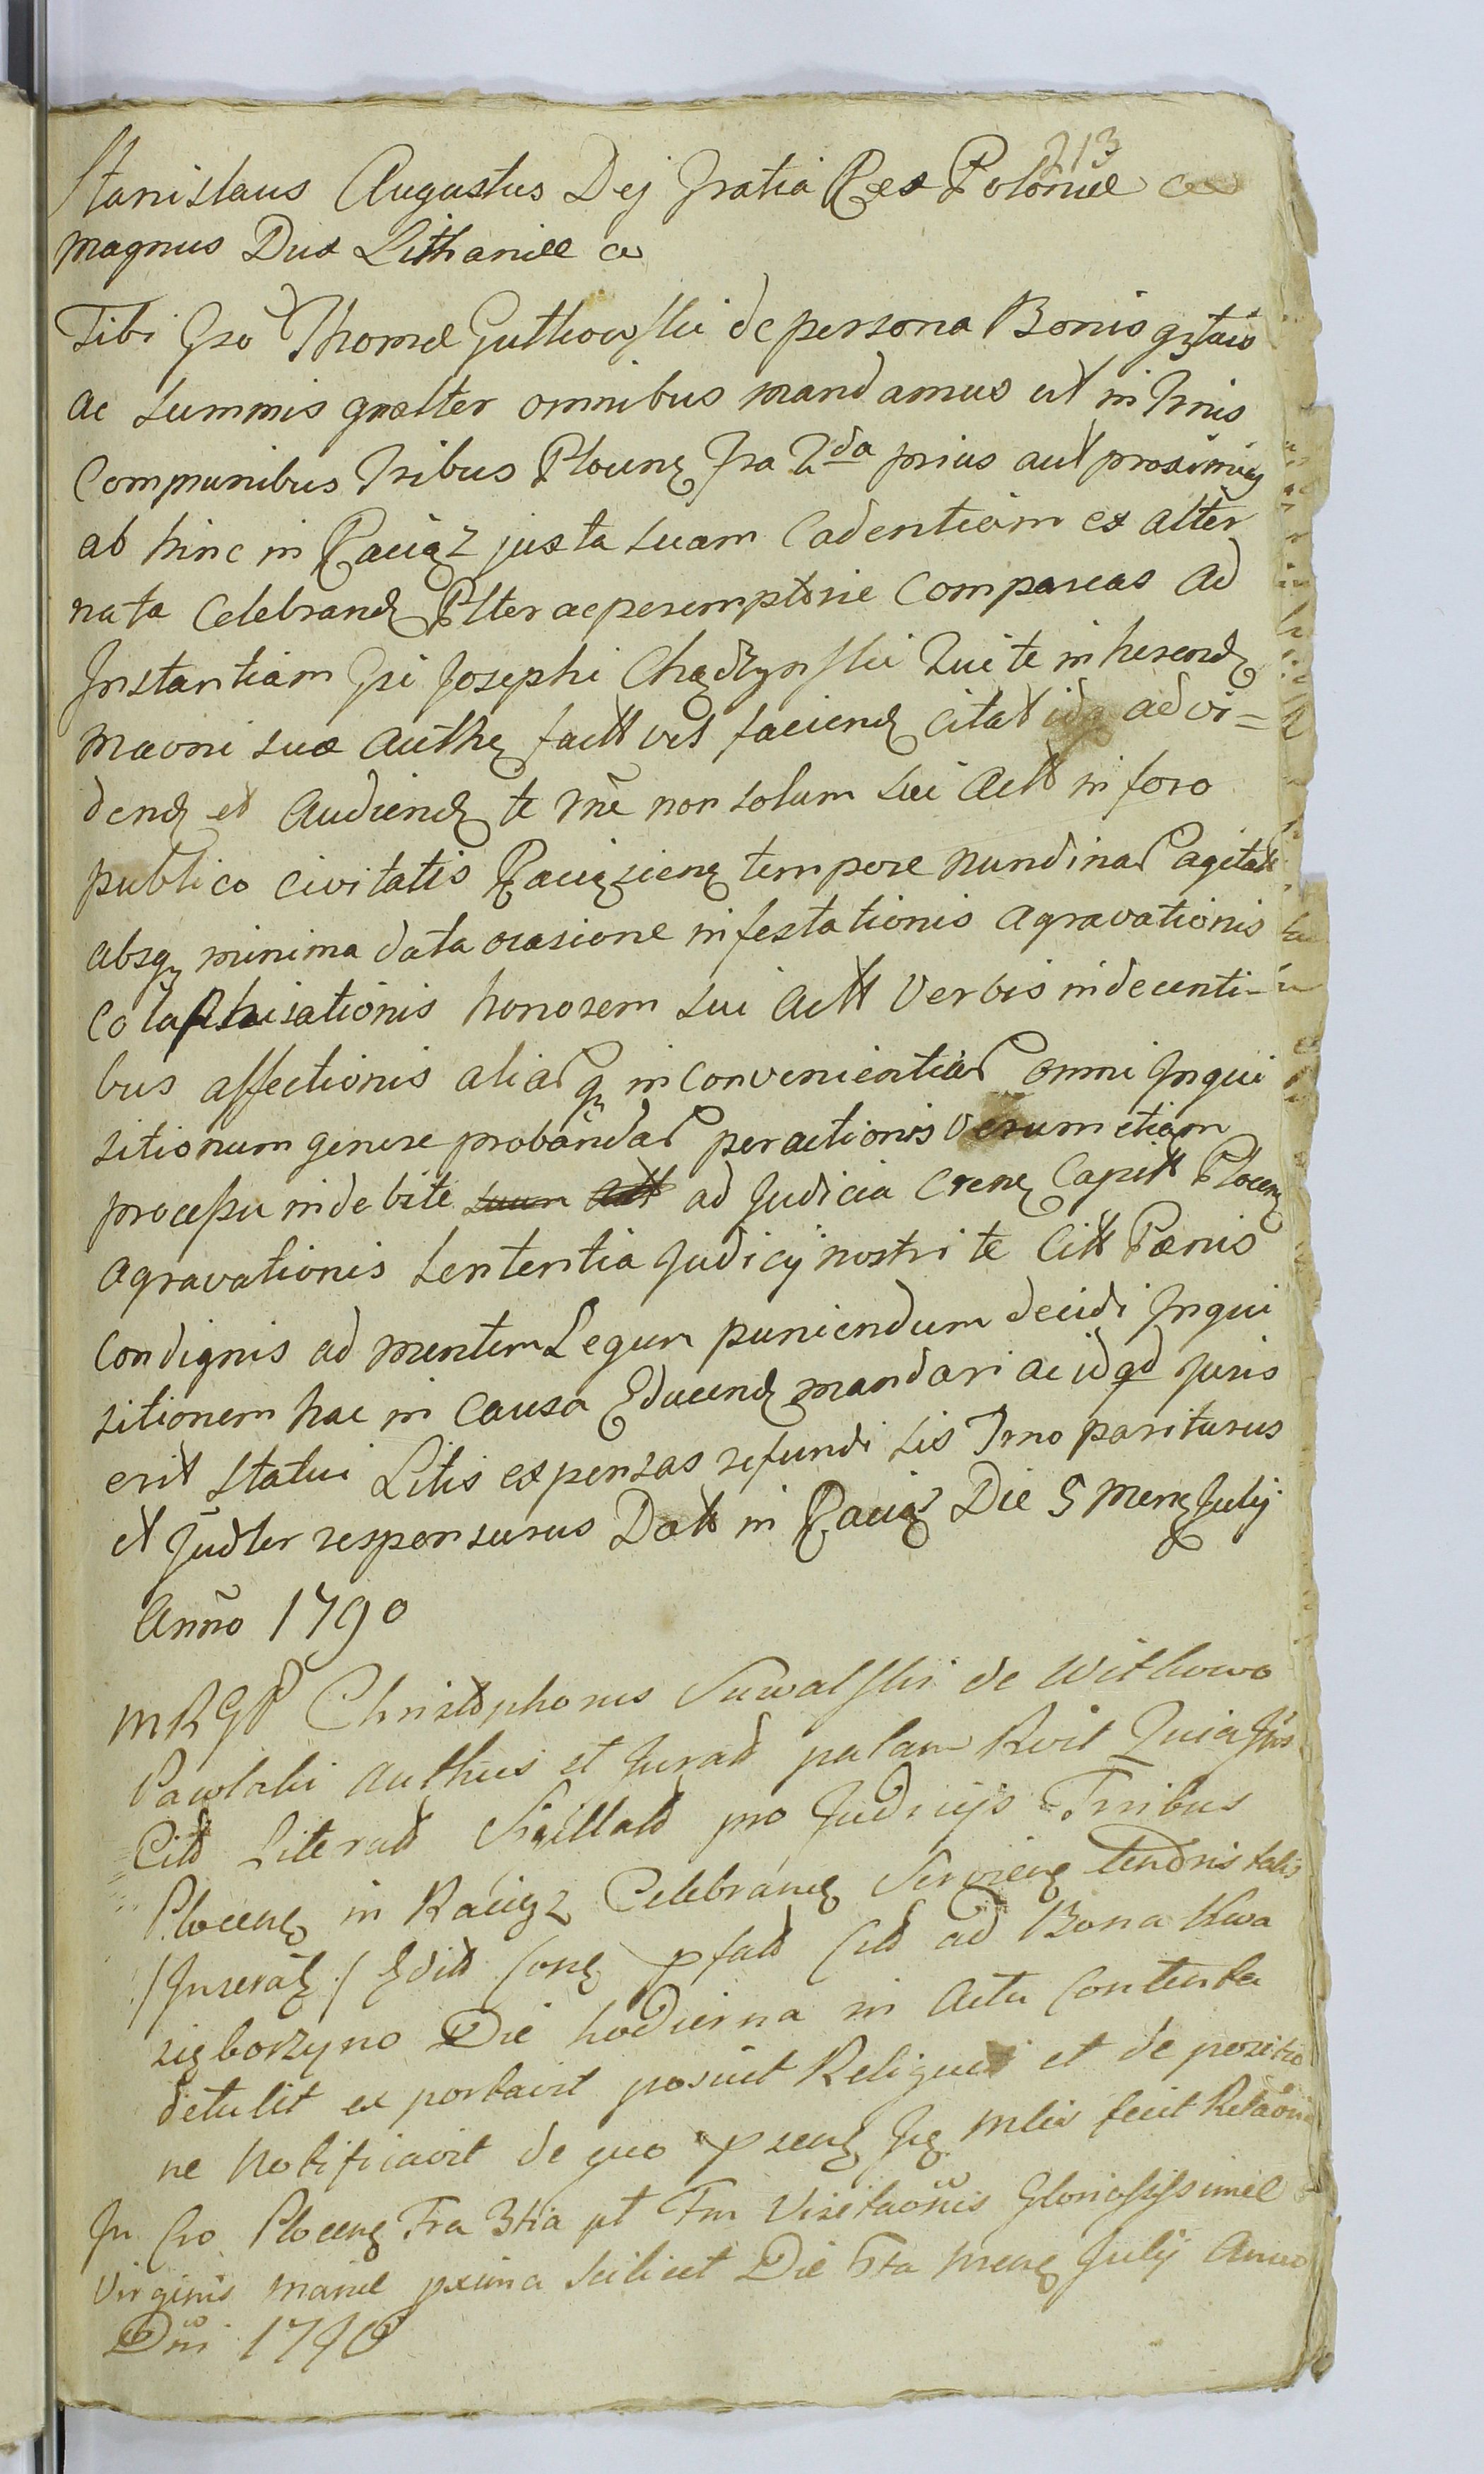 213
Stanislaus Augustus Dej Gratia Rex Poloniæ
Magnus Dux Lithaniæ
Tibi Gso Thomæ Gutkowski de persona Bonis
ac summis gnalter omnibus mandamus ut in Trnis
Compunibus Tribus Plocens Fra 2da prius aut proximius
ab hinc in Raciąz juxta suam Cadentiam ex alter
nata Celebrand Plter ac peremptorie Compareas ad
Instantiam Gsi Josephi Chądzynski Qui te inherend
suæ factt vel faciend citat idq ad vi=
dend et Audiend te non solum sui Actt in foro
publico Civitatis Raciąziens tempore nundinar agitatt
absq minima data ocasione infestationis agravationis
Colaphisationis honorem sui Actt Verbis indecenti-
bus affectionis aliarq inconvenientiar omni Inqui
sitionum genere probandar peractionis Verum etiam
processu indebite suum Actt ad Judicia Crens Capitt Plocens
Agravationis Sententia Judicij nostri te Citt Pænis
Condignis ad mentem Legum puniendum decidi Inqui
sitionem hac in Causa Educend mandari ac id qd juris
erit statui Litis expensas refundi sis Trno pariturus
et Judter responsurus Datt in Raciąz Die 5 Mens Julij
Anno 1790
MRGP Christophorus Suwalski de Witkowo
Pawlaki Authus et Juratt palam Rvit Quia
Citt Literatt Sigillatt pro Judicijs Trnibus
Plocens in Raciąz Celebrand Serviens tenoris talis
/Inserat/ Editt Cons Citt ad Bona Kwa
sięborzyno Die hodierna in Actu Contenta
detulit ex portavit posuit Reliquit et de positio
ne Notificavit de quo fecit Relaonem
In Cro Plocens Fra 3tia pt Fm Visitaonis Gloriosissimæ
Virginis Mariæ pxima scilicet Die 6ta Mens Julij Anno
Dni 1790